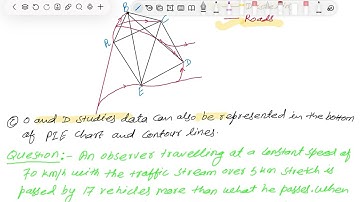 B
C
Roads
A
D
E
© O and D studies data can also be represented in the bottom
of PIE chart and contour lines.
Question:- An observer travelling at a constant speed of
70 km/h with the traffic stream over 5 km stretch is
passed by 17 vehicles more than what he passes. When